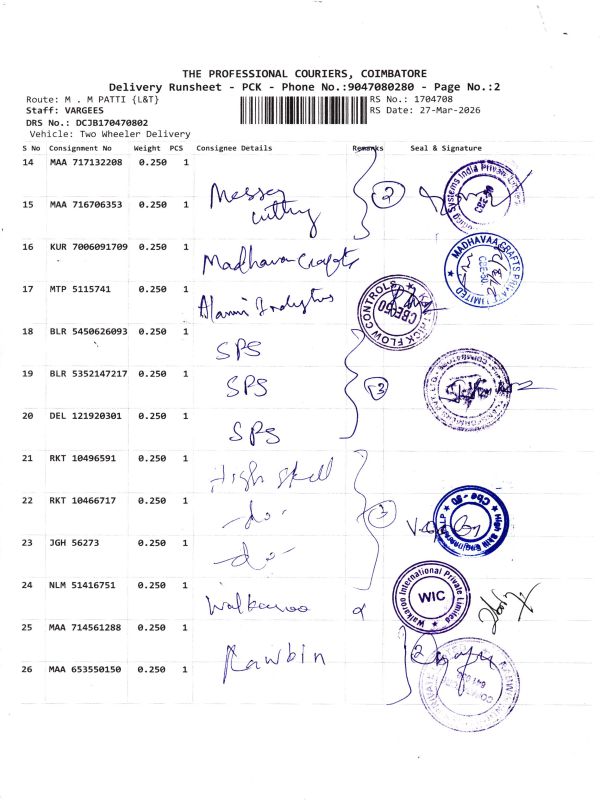 THE PROFESSIONAL COURIERS, COIMBATORE
Delivery Runsheet - PCK - Phone No.:9047080280 - Page No.:2
Route: M . M PATTI {L&T} RS No.: 1704708
Staff: VARGEES RS Date: 27-Mar-2026
DRS No.: DCJB170470802
Vehicle: Two Wheeler Delivery
S No Consignment No Weight PCS Consignee Details Remarks Seal & Signature
14 MAA 717132208 0.250 1 Messer 2
15 MAA 716706353 0.250 1 Cutting
CBE-50
16 KUR 7006091709 0.250 1 Madhava Crafts
MADHAVAA CRAFTS PRIVATE LIMITED
CBE-50
17 MTP 5115741 0.250 1
FLOW CONTROLS
CBE-50
18 BLR 5450626093 0.250 1 SPS
19 BLR 5352147217 0.250 1 SPS 3
20 DEL 121920301 0.250 1 SPS
21 RKT 10496591 0.250 1 High Skill
22 RKT 10466717 0.250 1 -do- 3
High Skill Engineers LLP
Cbe - 50
23 JGH 56273 0.250 1 -do-
24 NLM 51416751 0.250 1 Walkaroo
Walkaroo International Private Limited
WIC
25 MAA 714561288 0.250 1 Rawbin 2
26 MAA 653550150 0.250 1